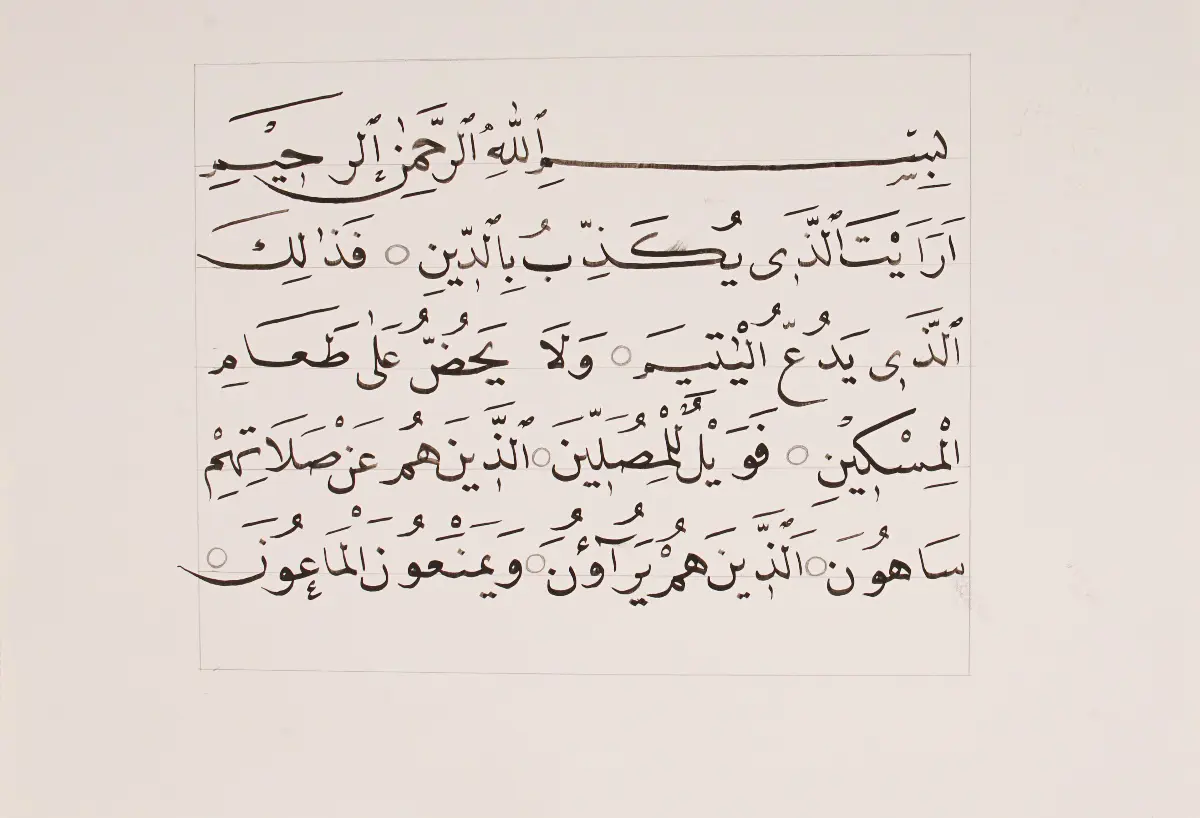 بِسْمِ ٱللّٰهِ ٱلرَّحْمٰنِ ٱلرَّحِيمِ
اَرَاَيْتَ ٱلَّذِى يُكَذِّبُ بِٱلدِّينِ ○ فَذٰلِكَ
ٱلَّذِى يَدُعُّ الْيَتِيمَ ○ وَلَا يَحُضُّ عَلٰى طَعَامِ
الْمِسْكِينِ ○ فَوَيْلٌ لِلْمُصَلِّينَ ○ ٱلَّذِينَ هُمْ عَنْ صَلَاتِهِمْ
سَاهُونَ ○ ٱلَّذِينَ هُمْ يُرَآؤُنَ ○ وَيَمْنَعُونَ الْمَاعُونَ ○